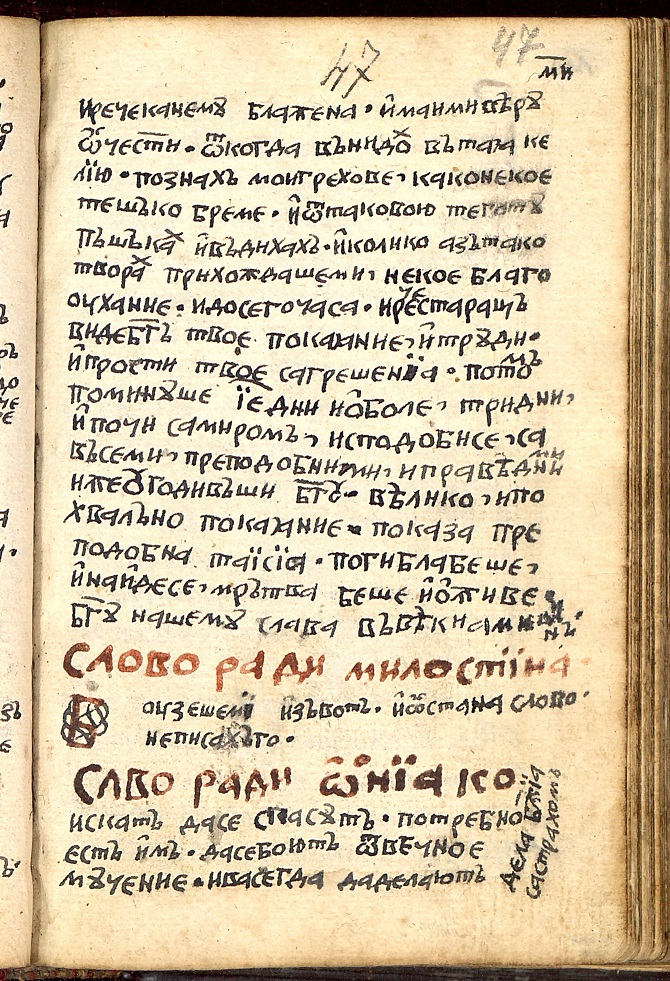 47 47
м҃и
ирече к немꙋ блажена · и҆ ми ими вѣрꙋ
ѿчести · ѿкогда вънидоⷯ въ таза ке
лїю · познахъ мои грехове, како некое
тешъко бреме · и҆ ѿ таковою теготꙋ
пъшъкаⷯ и҆ въдихахъ · и҆ колико азъ тако
твораⷯ прихождашеми, некое благо
оуха­ние · и до сего часа · и рⷱ҇е старацъ
виде бг҃ъ твое покаꙗние, и҆ трꙋди ·
и҆ прости твое сагрешенїа · потоⷨъ
поминꙋше їе҃ дни и҆ боле, три дни,
и҆ почи са миромъ, и сподоби се, са
въсеми, преподобними, и праведⷩими
иже ѹгодивъши бг҃ꙋ · вѣлико, и по
хвално покаꙗние · показа пре
подобна таїсїа · погибла беше,
и҆ наиде се, мрътва беше и҆ о҆живе ·
бг҃ꙋ нашемꙋ слава въ вѣки аминъ
слово ради милостїна ·
В оузешемї изъвотъ · и҆ ѡ҆стана слово ·
неписахъ то ·
слво ради ѡ҆нїа ко
искатъ да се спасꙋтъ · потребно
естъ и҆мъ · да се боютъ ѿ вѣчное
мꙋчение · и васегда да делаютъ
дела бж҃їа
са страхомъ